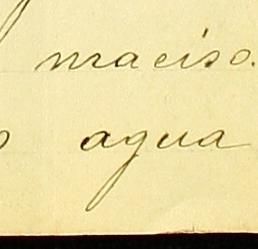 maciso.
agua